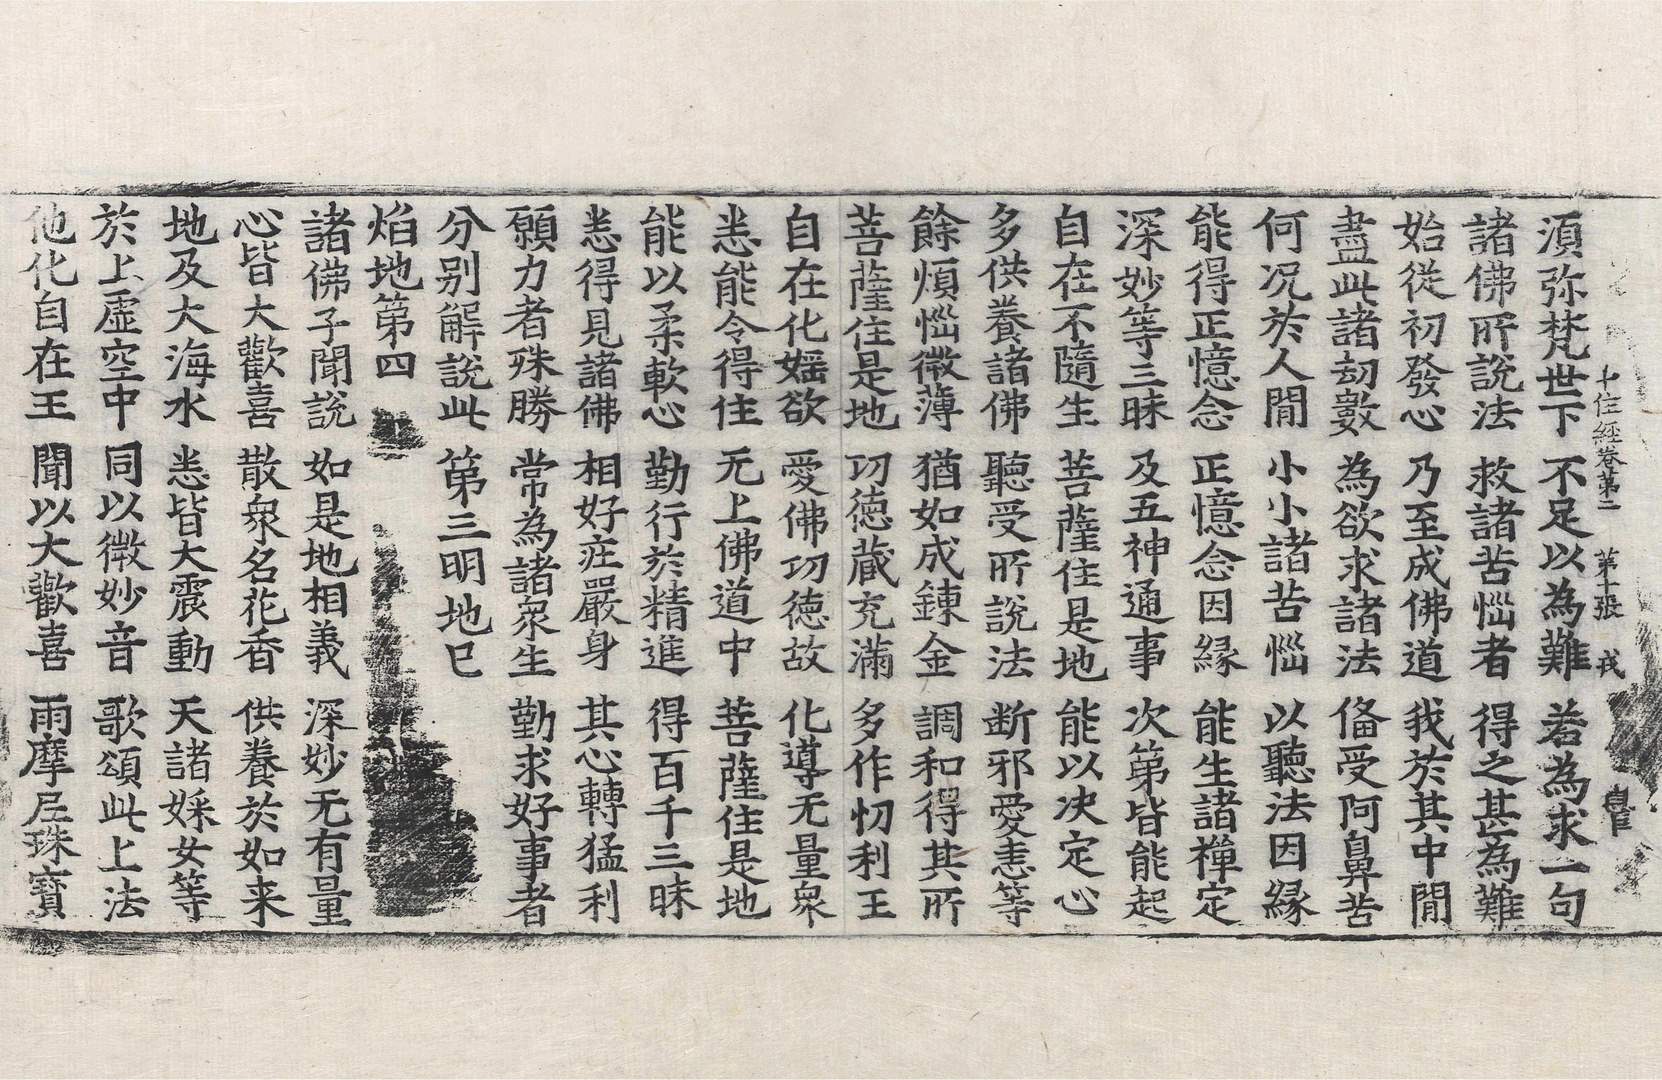 十住經卷第二　第十張　戎
湏弥梵世下　不足以為難　若為求一句
諸佛所說法　救諸苦惱者　得之甚為難
始從初發心　乃至成佛道　我於其中間
盡此諸劫數　為欲求諸法　俻受阿鼻苦
何况於人間　小小諸苦惱　以聽法因縁
能得正憶念　正憶念因縁　能生諸禪定
深妙等三昧　及五神通事　次第皆能起
自在不隨生　菩薩住是地　能以决定心
多供養諸佛　聽受所說法　断邪愛恚等
餘煩惱微薄　猶如成鍊金　調和得其所
菩薩住是地　功德藏充滿　多作忉利王
自在化婬欲　愛佛功德故　化導无量衆
恙能令得住　无上佛道中　菩薩住是地
能以柔軟心　勤行於精進　得百千三昧
恙得見諸佛　相好莊嚴身　其心轉猛利
願力者殊勝　常為諸衆生　勤求好事者
分别解說此　第三明地已
焰地第四
諸佛子聞說　如是地相義　深妙无有量
心皆大歡喜　散衆名花香　供養於如来
地及大海水　恙皆大震動　天諸婇女等
於上虛空中　同以微妙音　歌頌此上法
他化自在王　聞以大歡喜　雨摩尼珠寶